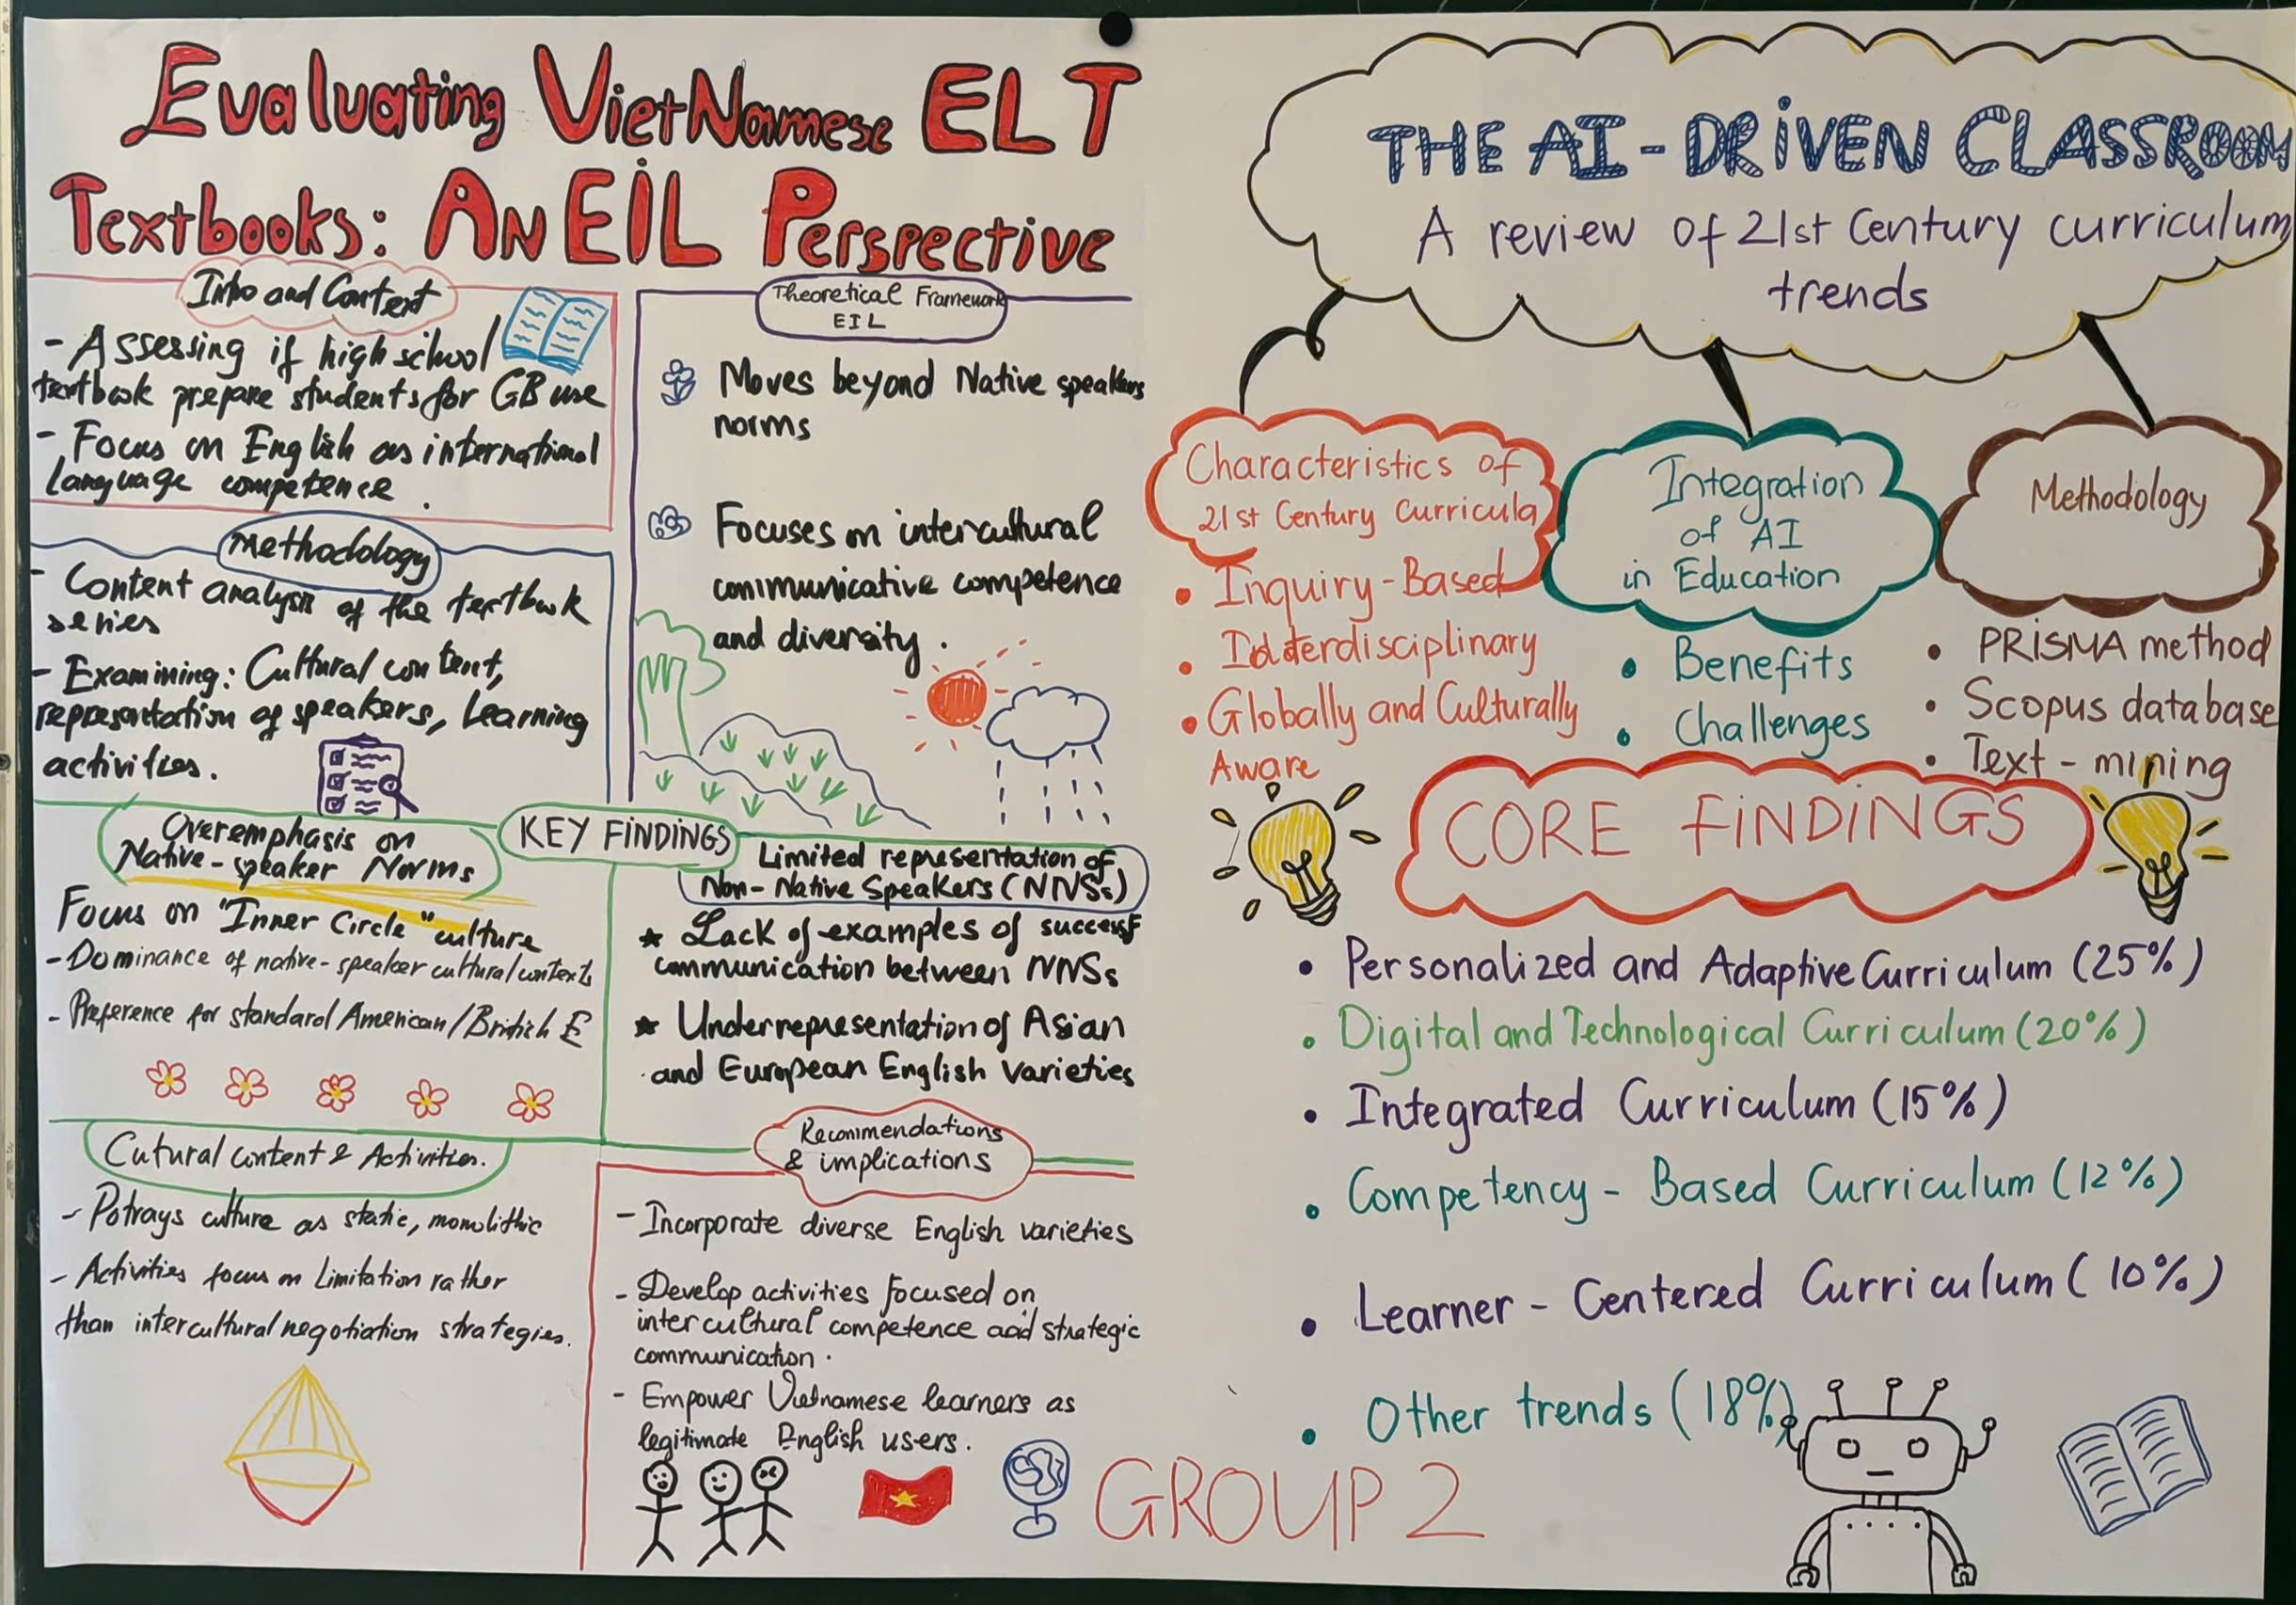 Evaluating VietNamese ELT
Textbooks: An EIL Perspective
Intro and Context
- Assessing if high school
textbook prepare students for GB use
- Focus on English as international
language competence.
Methodology
- Content analysis of the textbook
series
- Examining: Cultural content,
representation of speakers, Learning
activities.
Theoretical Framework
EIL
Moves beyond Native speakers
norms
Focuses on intercultural
communicative competence
and diversity.
KEY FINDINGS
Overemphasis on
Native-speaker Norms
Focus on "Inner Circle" culture
- Dominance of native-speaker cultural contexts
- Preference for standard American/British E
Limited representation of
Non-Native Speakers (NNSs)
★ Lack of examples of successf
communication between NNSs
★ Underrepresentation of Asian
and European English varieties
Cutural content & Activities.
- Potrays culture as static, monolithic
- Activities focus on Limitation rather
than intercultural negotiation strategies.
Recommendations
& implications
- Incorporate diverse English varieties
- Develop activities focused on
intercultural competence and strategic
communication.
- Empower Vietnamese learners as
legitimate English users.
THE AI-DRIVEN CLASSROOM
A review of 21st Century curriculum
trends
Characteristics of
21st Century Curricula
• Inquiry-Based
• Interdisciplinary
• Globally and Culturally
Aware
Integration
of AI
in Education
• Benefits
• Challenges
Methodology
• PRISMA method
• Scopus database
• Text-mining
CORE FINDINGS
• Personalized and Adaptive Curriculum (25%)
• Digital and Technological Curriculum (20%)
• Integrated Curriculum (15%)
• Competency-Based Curriculum (12%)
• Learner-Centered Curriculum (10%)
• Other trends (18%)
GROUP 2